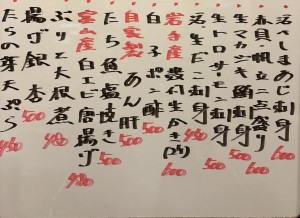 活〆しまあじ刺身
赤貝・帆立二点盛り 600
生マカジキ鮪刺身 500
生トロサーモン刺 500
活・生だこ刺身 450
岩手産 殻付生かき(内) 600
白子ポン酢 500
自家製 あん肝 500
たち魚塩焼き 500
富山産 白エビ唐揚げ 480
ぶりと大根煮 480
揚げ銀杏 500
たらの芽天ぷら 480